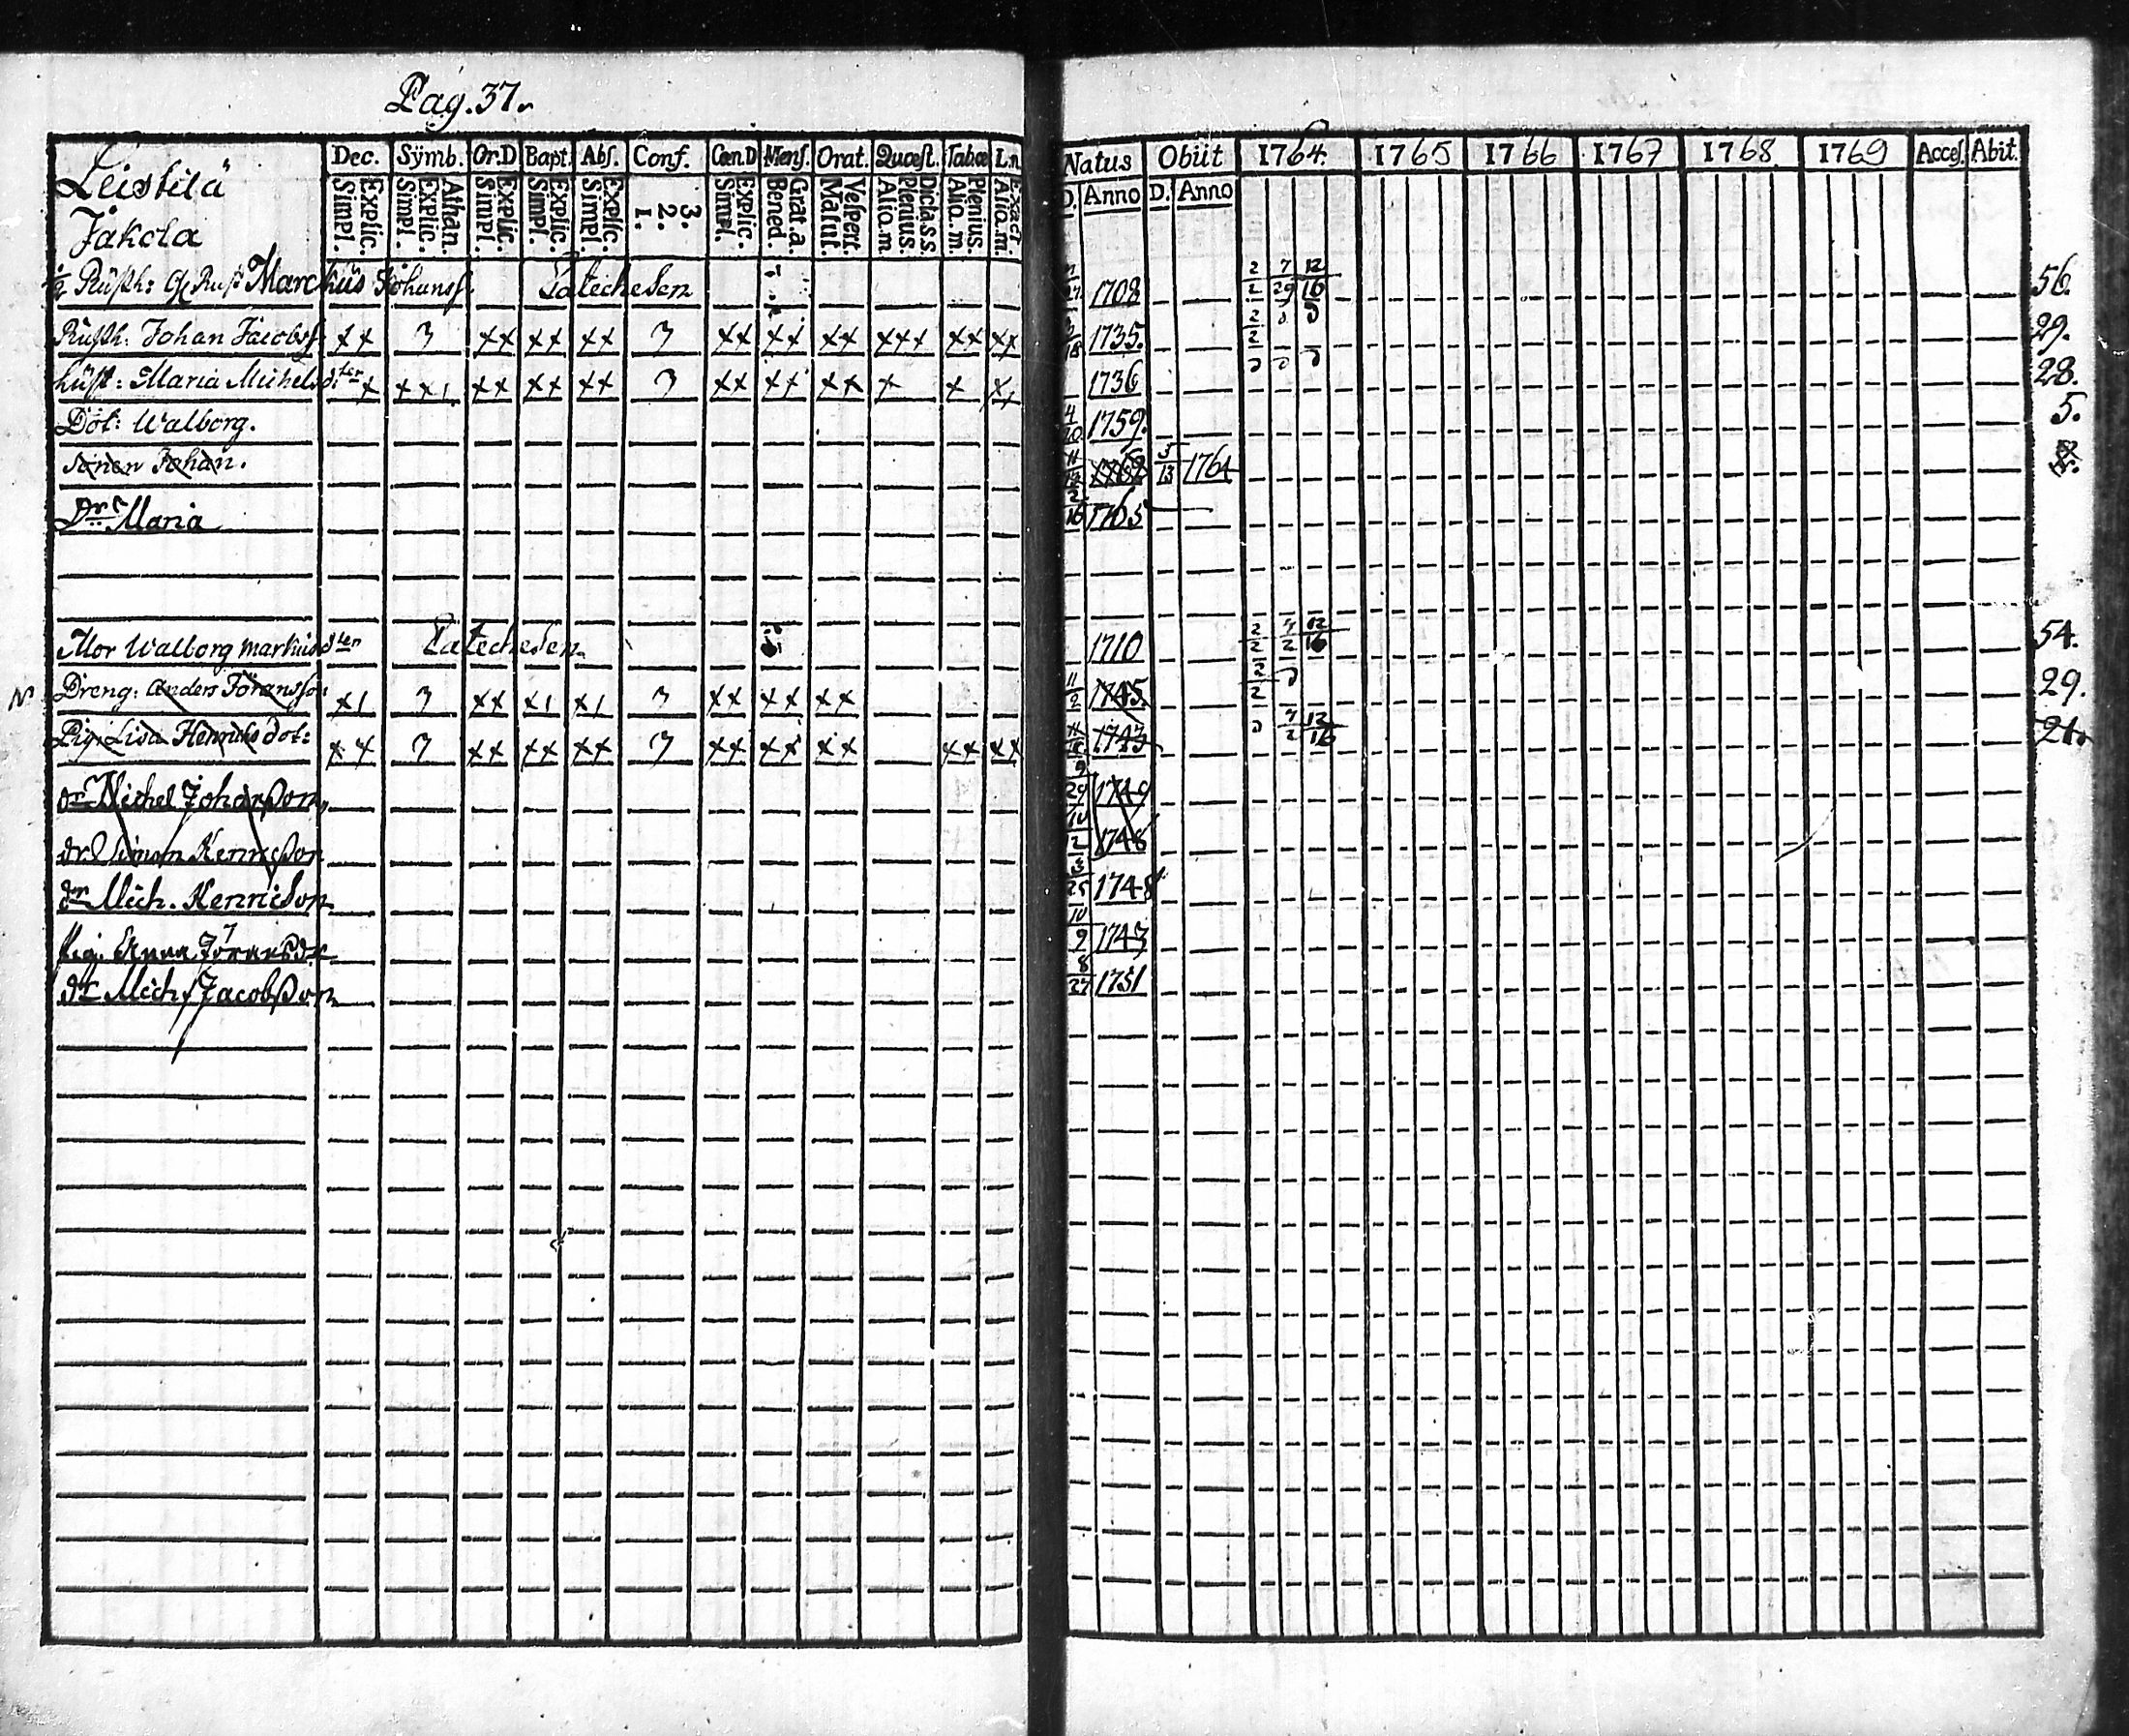 Pag. 37.
Leistilä
Jakola
Dec. Sÿmb. Or.D Bapt. Abs. Conf. Cœn.D Mens. Orat. Quæst. Tabœ L.n
Explic. Simpl. Athan. Explic. Simpl. Explic. Simpl. Explic. Simpl. Explic. Simpl. 3. 2. 1. Explic. Simpl. Grat. a. Bened. Vespert. Matut. Dicta.s.s. Plenius. Alio.m Plenius. Alio.m. Exact Alio.m.
Natus Obiit 1764. 1765 1766 1767 1768 1769 Acces. Abit.
D. Anno D. Anno
½ Rusth: Marchus Johanss. Catechesen 1708 2/2 7/29 12/16 56.
Rusth: Johan Jacobss: xx 3 xx xx xx 3 xx xx xx xxx xx xx 18 1735. 2/2 29.
hust: Maria Michelsdter x xx1 xx xx xx 3 xx xx xx x x xx 1736 28.
Dot: Walborg. 4/20 1759. 5.
Sonen Johan. 11 5/13 1764
Dr Maria 2/16 1765
Mor Walborg markusdter Catechesen 1710 2/2 7/2 12/16 54.
Dreng: Anders Jöransson x1 3 xx x1 x1 3 xx xx xx 11/2 1745. 2/2 29.
Pig: Lisa Henricksdot: xx 3 xx xx xx 3 xx xx xx xx xx 1743 7/2 12/16 21.
dr Michel Johansson 9/29 1749
dr Simon Henricson 10/2 1748
dr Mich. Henricson 3/25 1748
Pig. Anna Jöransdr 10/9 1743
dr Mich. Jacobsson 8/27 1751